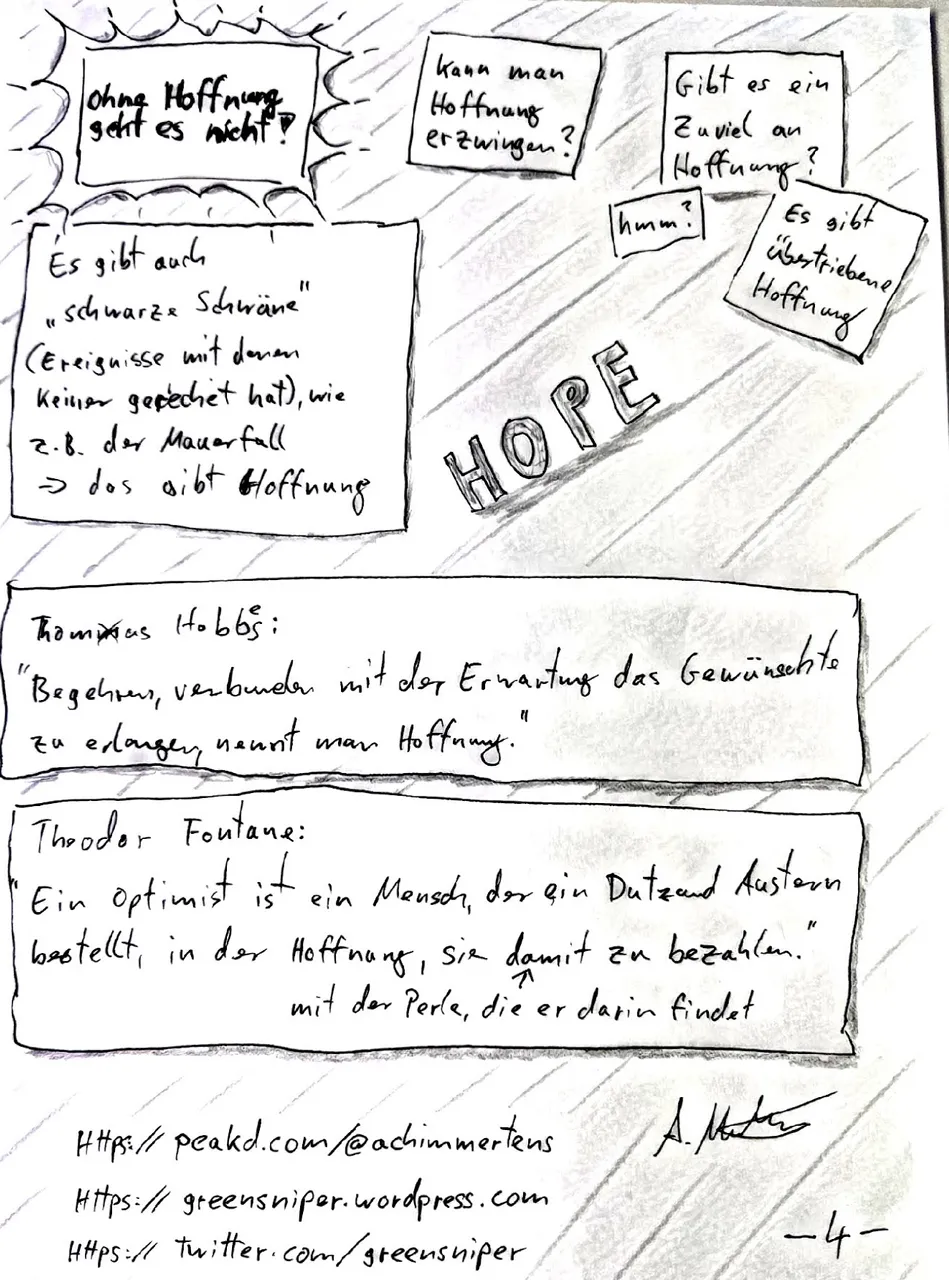 Ohne Hoffnung
geht es nicht!
Kann man
Hoffnung
erzwingen?
Gibt es ein
Zuviel an
Hoffnung?
hmm?
Es gibt
übertriebene
Hoffnung
Es gibt auch
„schwarze Schwäne"
(Ereignisse mit denen
keiner gerechet hat), wie
z.B. der Mauerfall
⇒ das gibt Hoffnung
HOPE
Thomas Hobbes:
"Begehren, verbunden mit der Erwartung das Gewünschte
zu erlangen, nennt man Hoffnung."
Theodor Fontane:
"Ein Optimist ist ein Mensch, der ein Dutzend Austern
bestellt, in der Hoffnung, sie damit zu bezahlen."
mit der Perle, die er darin findet
A.
Https:// peakd.com/@achimmertens
Https:// greensniper.wordpress.com
Https:// twitter.com/greensniper
-4-